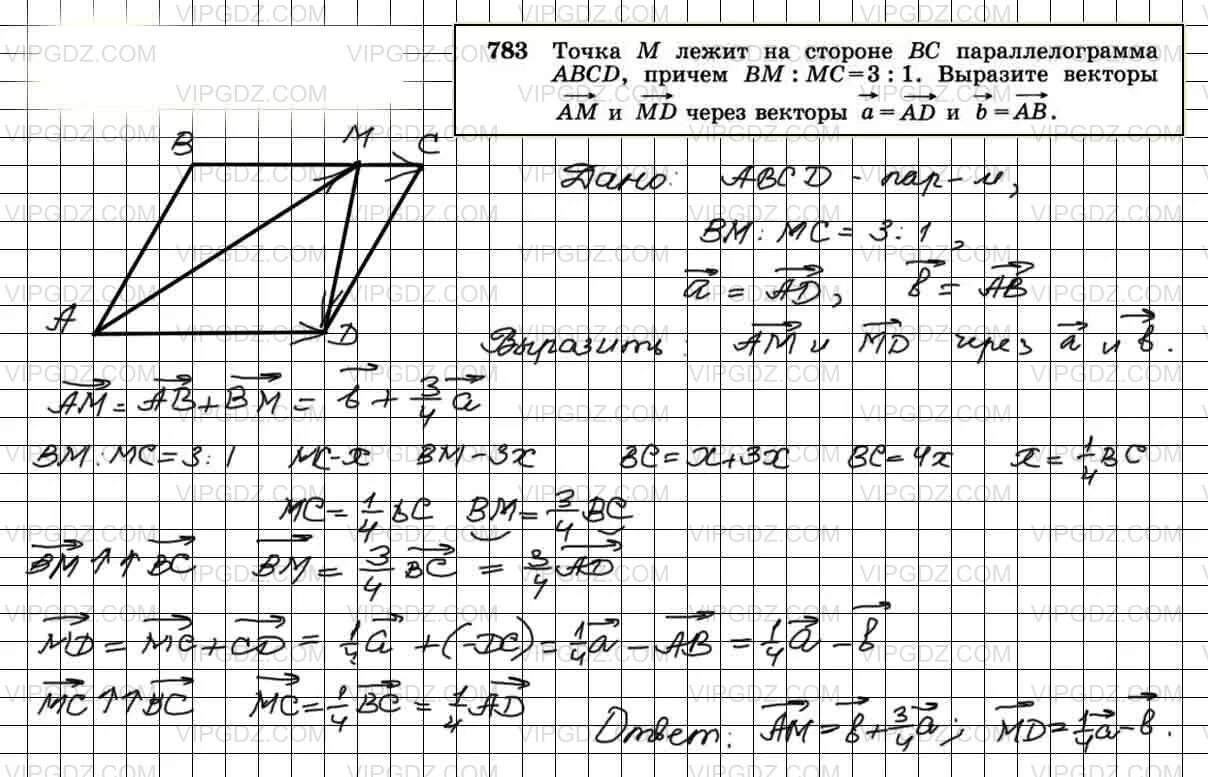 783 Точка M лежит на стороне BC параллелограмма
ABCD, причем BM : MC = 3 : 1. Выразите векторы
AM→ и MD→ через векторы a→ = AD→ и b→ = AB→.
B M C
A D
Дано: ABCD - пар-м,
BM : MC = 3 : 1,
a→ = AD→, b→ = AB→
Выразить: AM→ и MD→ через a→ и b→.
AM→ = AB→ + BM→ = b→ + 3/4 a→
BM : MC = 3 : 1 MC - x BM - 3x BC = x + 3x BC = 4x x = 1/4 BC
MC = 1/4 BC BM = 3/4 BC
BM→ ↑↑ BC→ BM→ = 3/4 BC→ = 3/4 AD→
MD→ = MC→ + CD→ = 1/4 a→ + (-DC) = 1/4 a→ - AB→ = 1/4 a→ - b→
MC→ ↑↑ BC→ MC→ = 1/4 BC→ = 1/4 AD→
Ответ: AM→ = b→ + 3/4 a→; MD→ = 1/4 a→ - b→.
VIPGDZ.COM